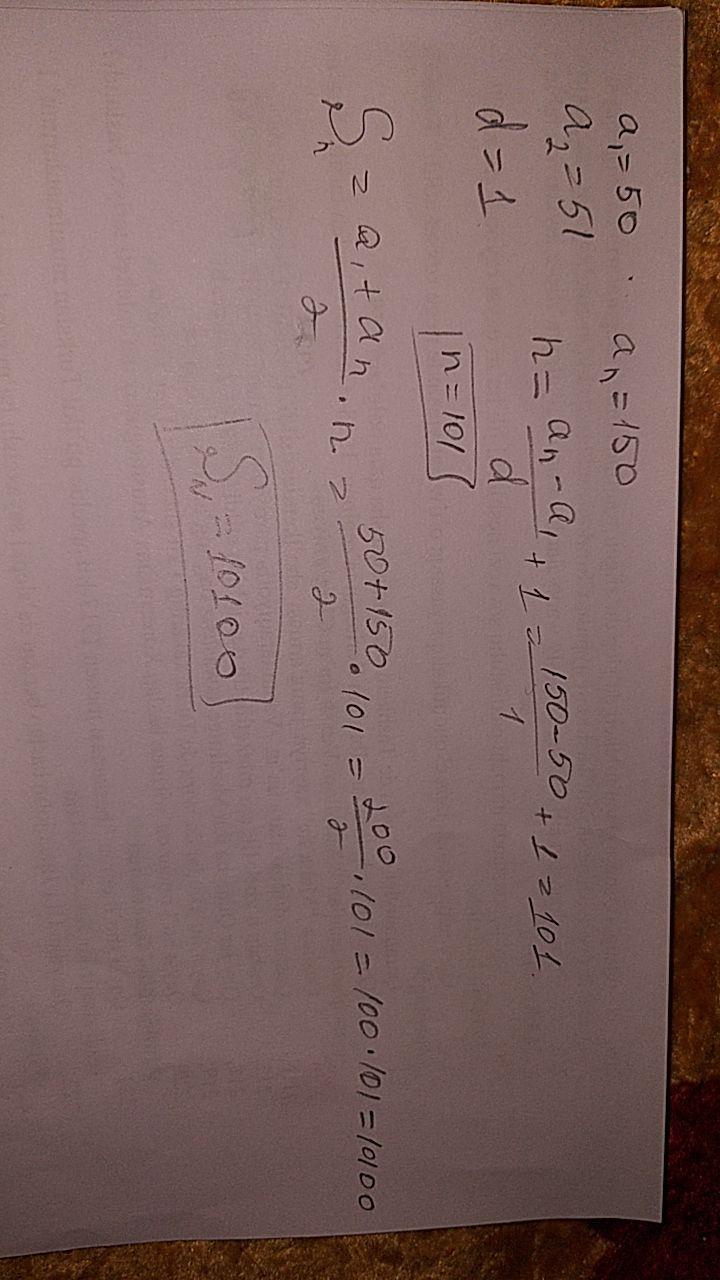 a₁=50 . aₙ=150
a₂=51
d=1
n = (aₙ-a₁)/d + 1 = (150-50)/1 + 1 = 101.
n=101
Sₙ = (a₁+aₙ)/2 · n = (50+150)/2 · 101 = 200/2 · 101 = 100 · 101 = 10100
Sₙ = 10100